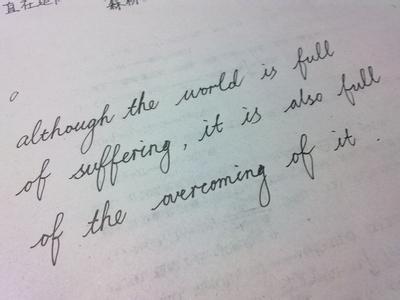 although the world is full
of suffering, it is also full
of the overcoming of it.